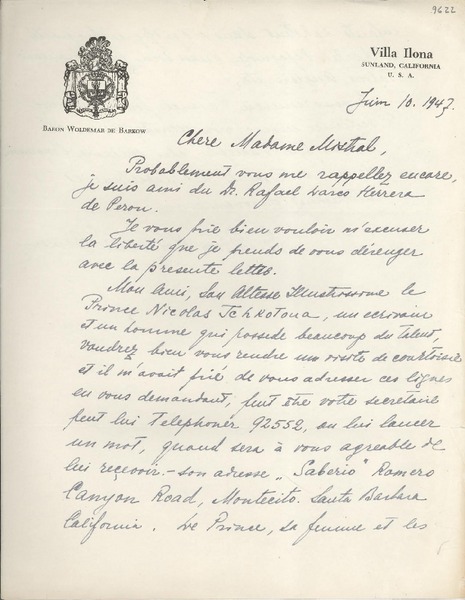 9622
Villa Ilona
SUNLAND, CALIFORNIA
U. S. A.
BARON WOLDEMAR DE BARKOW
Juin 10. 1947.
Chere Madame Mistral,
Probablement vous me rappellez encore,
je suis ami du Dr. Rafael Larco Herrera
de Perou.
Je vous prie bien vouloir m'excuser
la liberté que je prends de vous déranger
avec la presente lettre.
Mon Ami, Son Altesse Illustrissime le
Prince Nicolas Tchkotoua, un ecrivain
et un homme qui possede beaucoup du talent
voudrez bien vous rendre un visite de courtoisie
et il m'avait prié de vous adresser ces lignes
en vous demandant, peut être votre secretaire
peut lui telephoner 92552, ou lui lancer
un mot, quand sera à vous agreable de
lui reçevoir. - son adresse „Saberio" Romero
Canyon Road, Montecito. Santa Barbara
California. Le Prince, sa femme et les